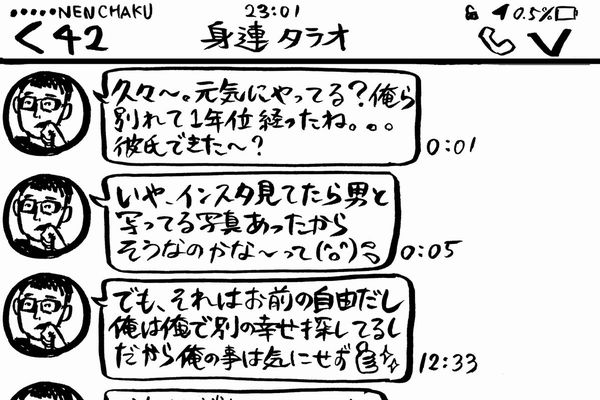 •••••NENCHAKU 23:01 0.5%
<42 身連タラオ
久々〜。元気にやってる？俺ら
別れて1年位経ったね。。。
彼氏できた〜？
0:01
いや、インスタ見てたら男と
写ってる写真あったから
そうなのかな〜って
0:05
でも、それはお前の自由だし
俺は俺で別の幸せ探してるし
だから俺の事は気にせず
12:33